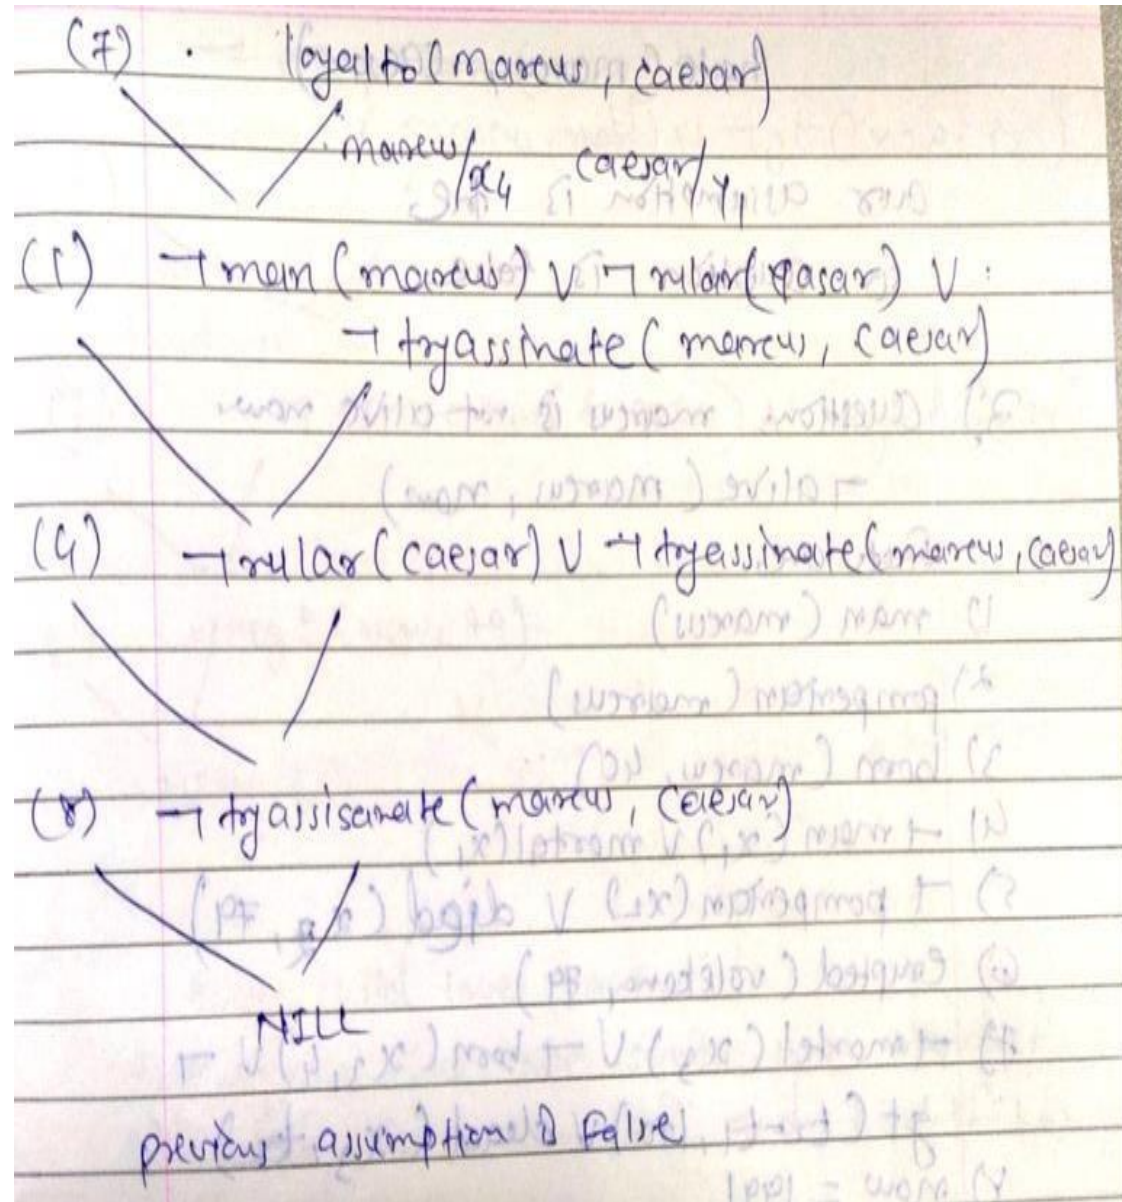 (7) . loyalto (marcus, caesar)
marcus/x4 caesar/y1
(1) ¬ man (marcus) V ¬ rular(casar) V
¬ tryassinate (marcus, caesar)
(4) ¬ rular (caesar) V ¬ tryassinate (marcus, caesar)
(8) ¬ tryassisanate (marcus, caesar)
NILL
previous assumption is false